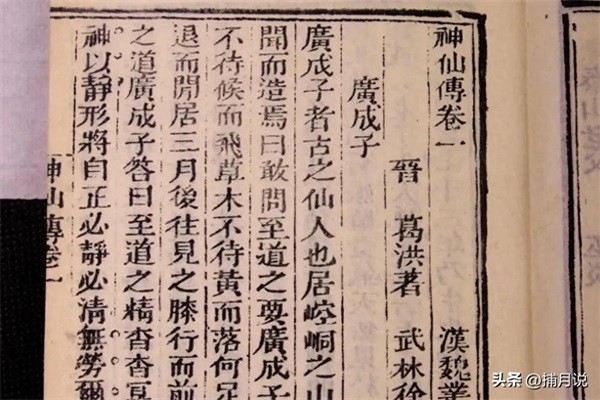 神仙傳卷一 漢魏叢
晉 葛洪著 武林徐
廣成子
廣成子者古之仙人也居崆峒之山
聞而造焉曰敢問至道之要廣成子
不待候而飛草木不待黃而落何足
退而閒居三月後往見之膝行而前
之道廣成子答曰至道之精杳杳冥
神以靜形將自正必靜必清無勞爾
神仙傳卷一
头条 @捕月说